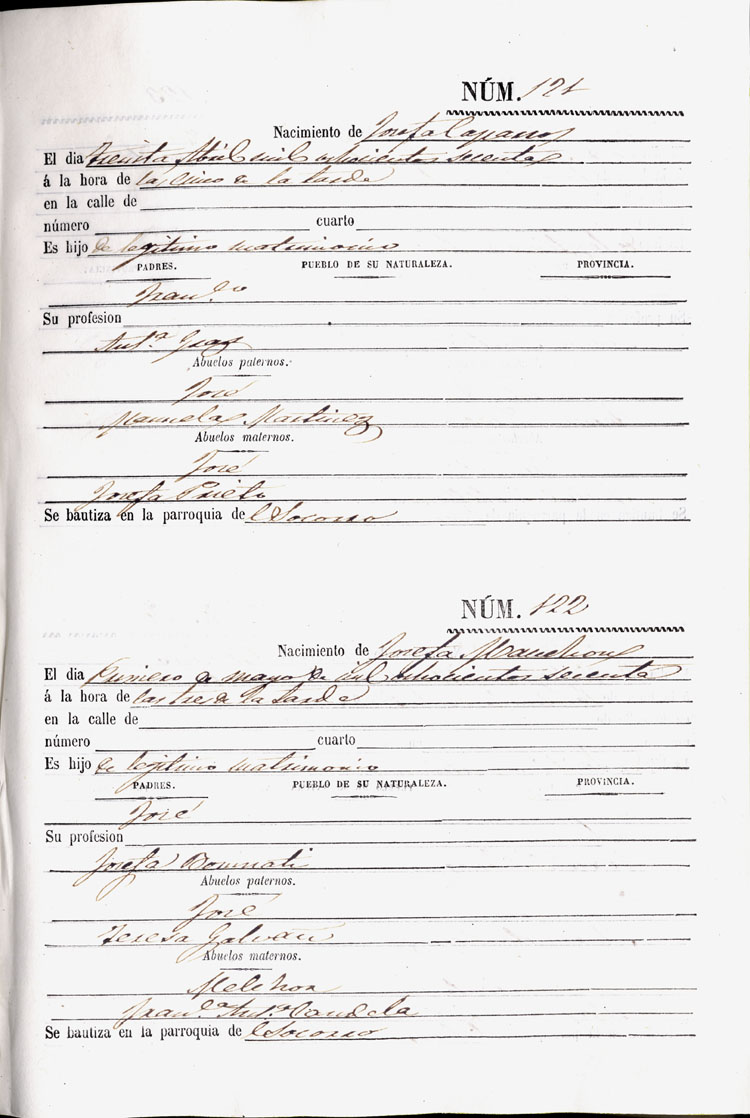 NÚM. 121
Nacimiento de Josefa
El dia treinta Abril mil ochocientos sesenta
á la hora de las cinco de la tarde
en la calle de
número cuarto
Es hijo de legitimo matrimonio
PADRES. PUEBLO DE SU NATURALEZA. PROVINCIA.
Fran.co
Su profesion
Ant.a
Abuelos paternos.
José
Manuela Martinez
Abuelos maternos.
José
Josefa Prieto
Se bautiza en la parroquia de el Socorro
NÚM. 122
Nacimiento de Josefa Manchon
El dia primero de mayo de mil ochocientos sesenta
á la hora de las tres de la tarde
en la calle de
número cuarto
Es hijo de legitimo matrimonio
PADRES. PUEBLO DE SU NATURALEZA. PROVINCIA.
José
Su profesion
Josefa
Abuelos paternos.
José
Teresa Galvañ
Abuelos maternos.
Melchor
Fran.ca Ant.a Candela
Se bautiza en la parroquia de el Socorro